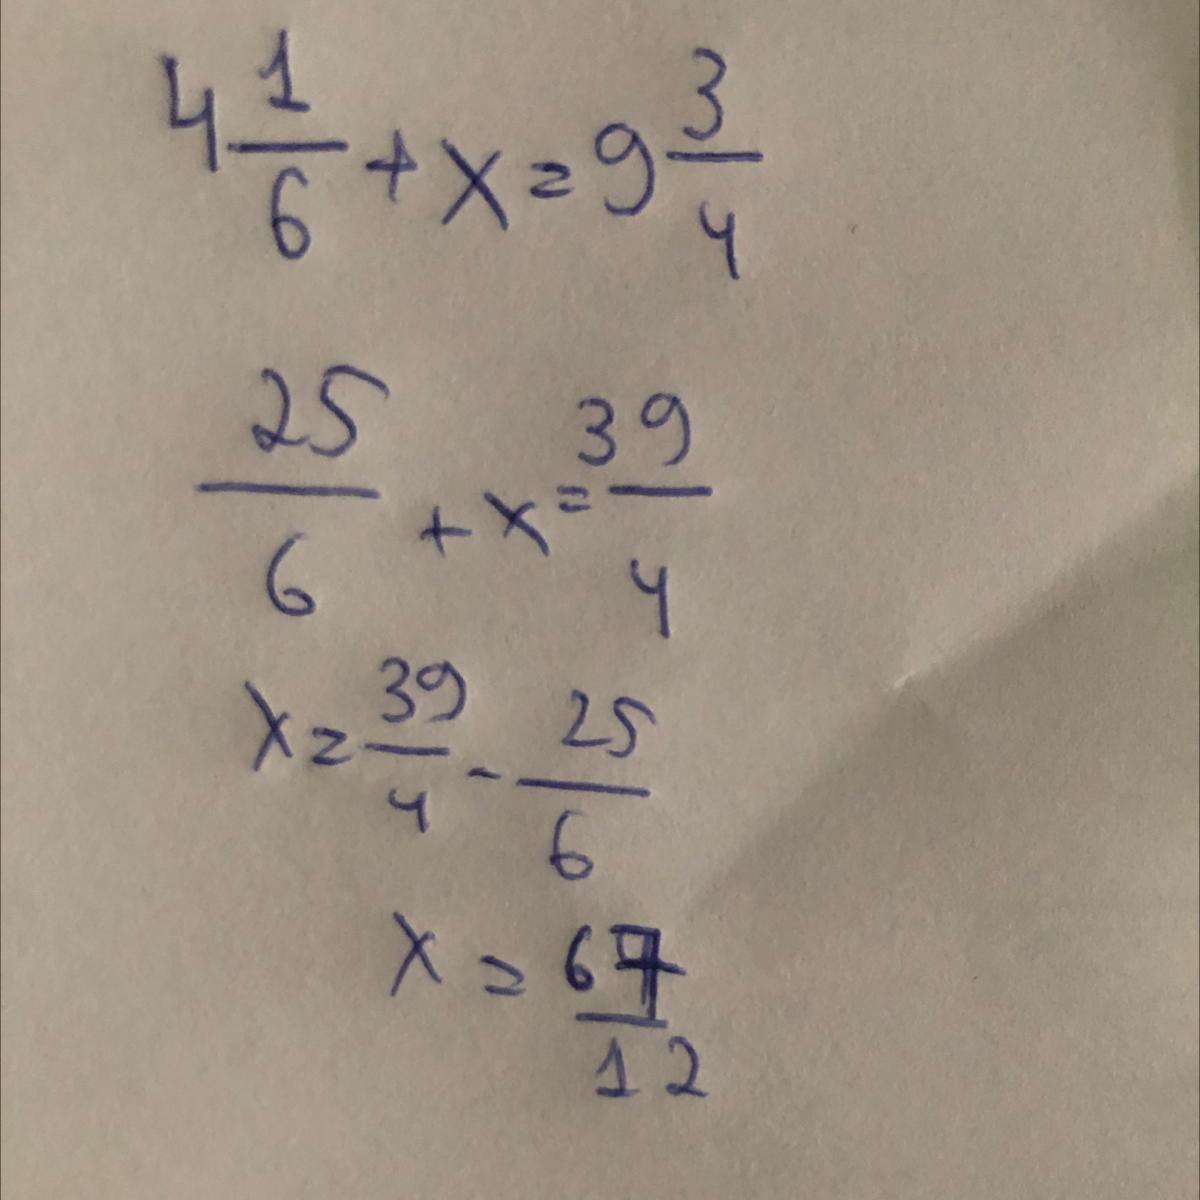 4 1/6 + x = 9 3/4
25/6 + x = 39/4
x = 39/4 - 25/6
x = 67/12